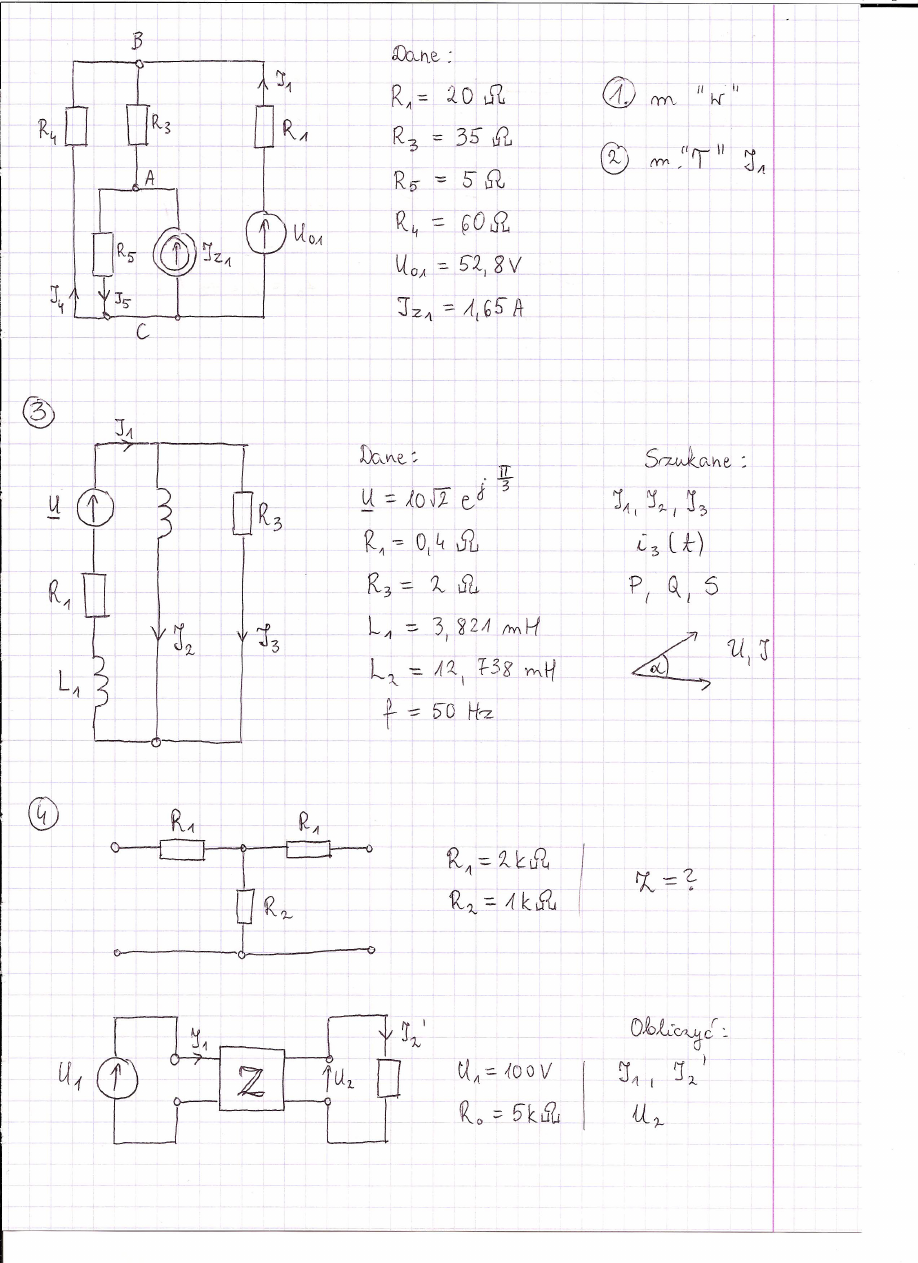 B
I₁
R₄
R₃
R₁
A
R₅
I_Z1
U₀₁
I₄
I₅
C
Dane:
R₁ = 20 Ω
R₃ = 35 Ω
R₅ = 5 Ω
R₄ = 60 Ω
U₀₁ = 52,8V
I_Z1 = 1,65 A
1. m "W"
2 m. "T" I₁
3
I₁
U
R₃
R₁
I₂
I₃
L₁
Dane:
U = 10√2 e^(j π/3)
R₁ = 0,4 Ω
R₃ = 2 Ω
L₁ = 3,821 mH
L₂ = 12,738 mH
f = 50 Hz
Szukane:
I₁, I₂, I₃
i₃(t)
P, Q, S
α
U, I
4
R₁
R₁
R₂
R₁ = 2kΩ
R₂ = 1kΩ
Z = ?
U₁
I₁
Z
U₂
I₂'
U₁ = 100V
R₀ = 5kΩ
Obliczyć:
I₁, I₂'
U₂